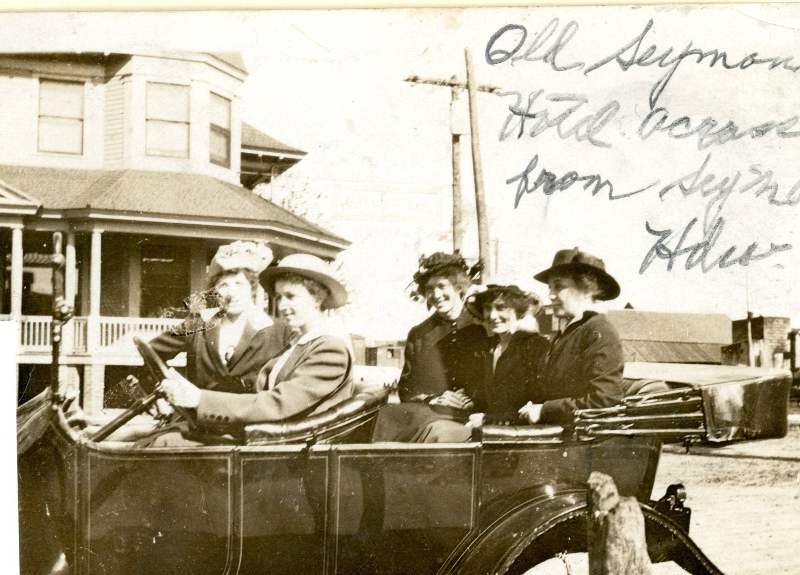 Old Seymou
Hotel across
from Seymo
Hdw.